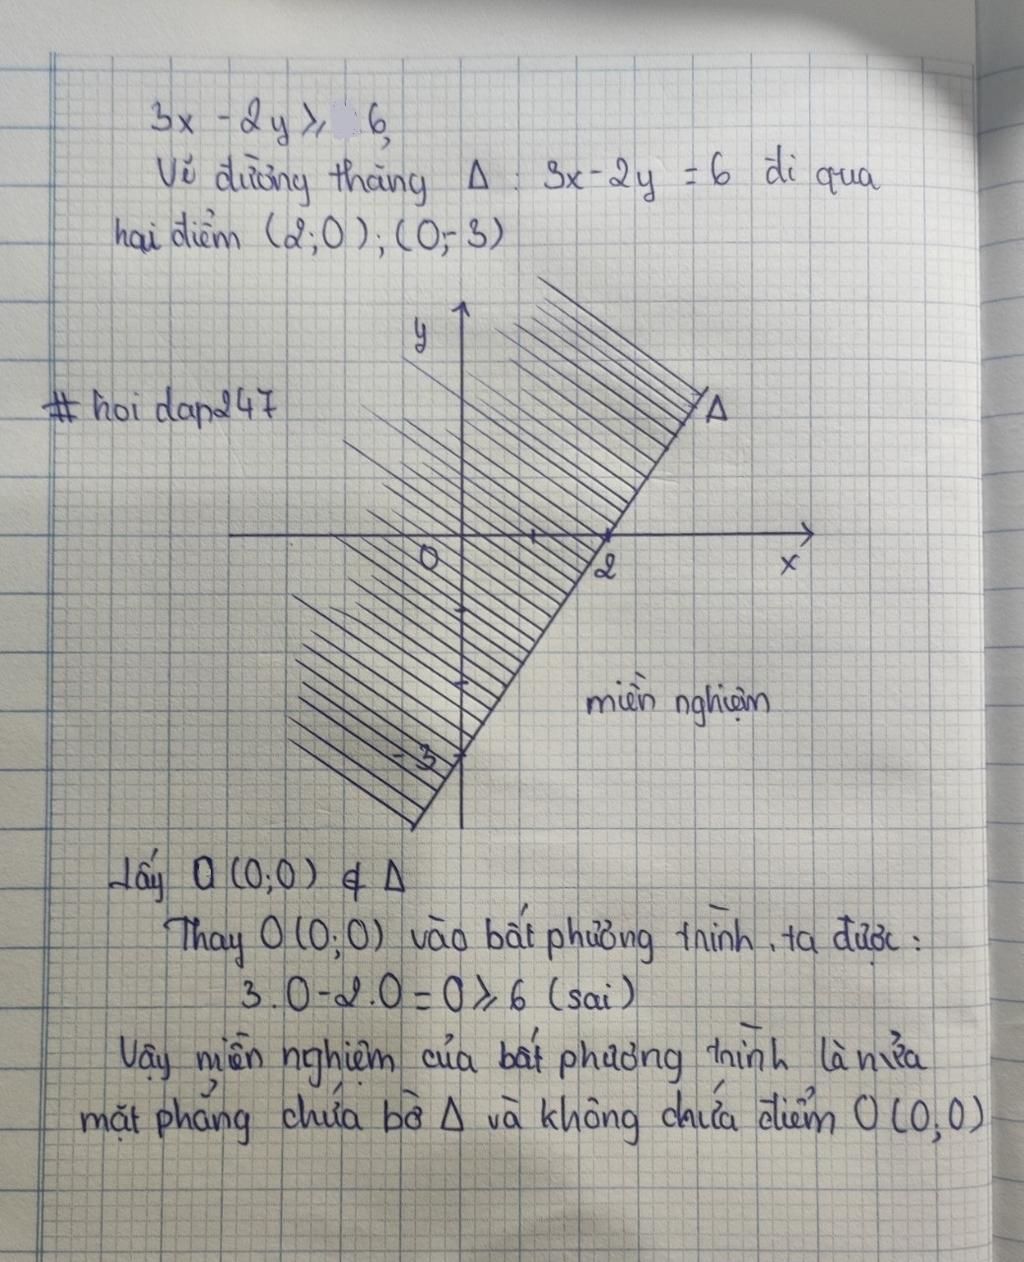 3x - 2y ⩾ 6,
Vẽ đường thẳng Δ : 3x - 2y = 6 đi qua
hai điểm (2;0); (0;-3)
y
# hoi dap247
Δ
O
2
x
miền nghiệm
-3
Lấy O(0;0) ∉ Δ
Thay O(0;0) vào bất phương trình, ta được:
3.0-2.0=0⩾6 (sai)
Vậy miền nghiệm của bất phương trình là nửa
mặt phẳng chứa bờ Δ và không chứa điểm O(0;0)